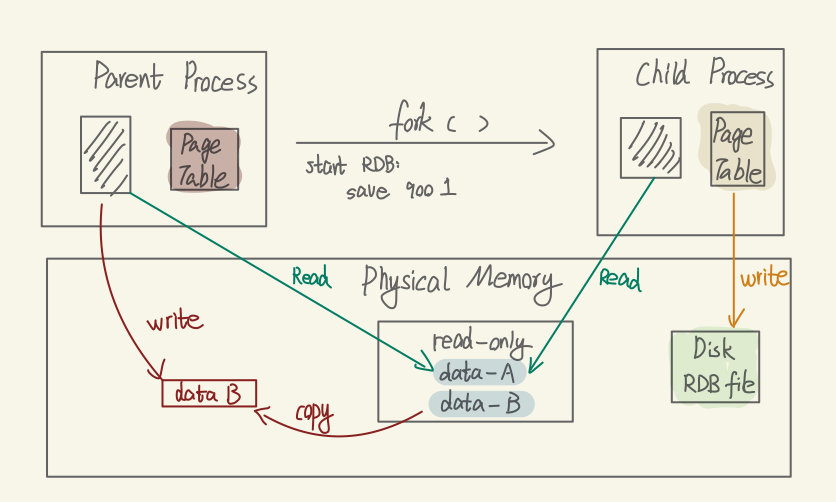 Parent Process
Page
Table
fork ( )
start RDB:
save 900 1
Child Process
Page
Table
Physical Memory
Read
Read
write
write
read-only
data-A
data-B
data B
copy
Disk
RDB file